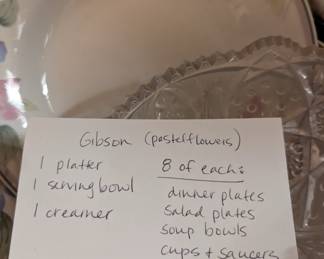 Gibson (pastelflowers)
1 platter
1 serving bowl
1 creamer
8 of each:
dinner plates
salad plates
soup bowls
cups + saucers